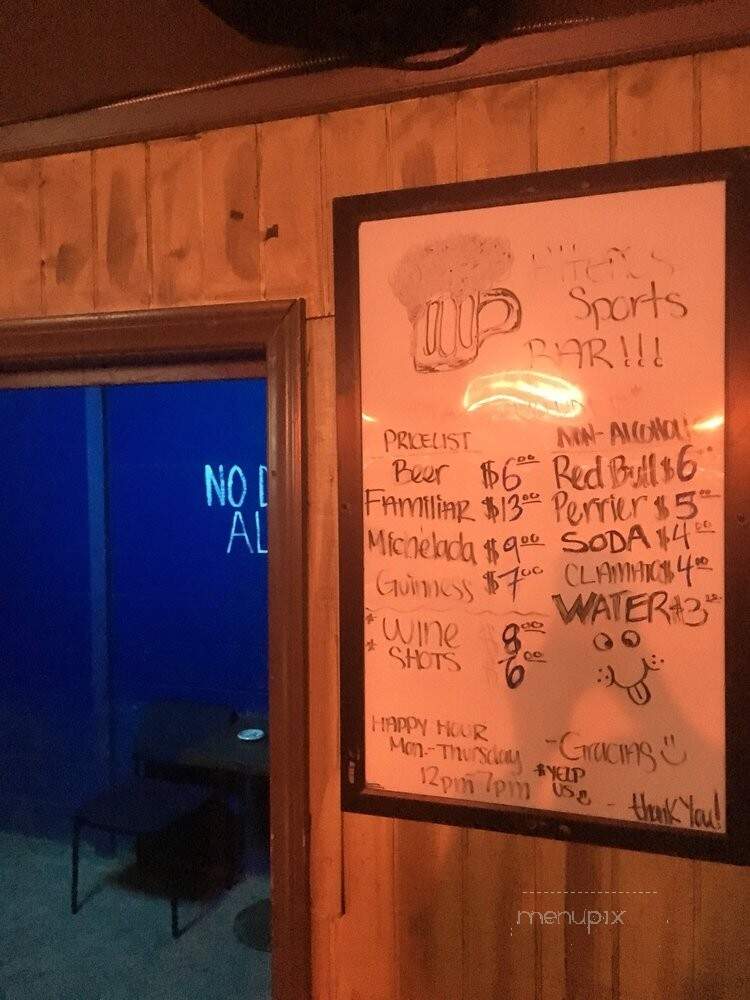 Sports
BAR!!!
PRICELIST
Beer $6.00
FAMILIAR $13.00
Michelada $9.00
Guinness $7.00
* WINE 8.00
* SHOTS 6.00
NON-ALCOHOL
Red Bull $6
Perrier $5.00
SODA $4.00
$4.00
WATER $3
HAPPY HOUR
Mon.-Thursday
12pm-7pm
-Gracias
*YELP
US
- thank You!
NO D
AL
menupix